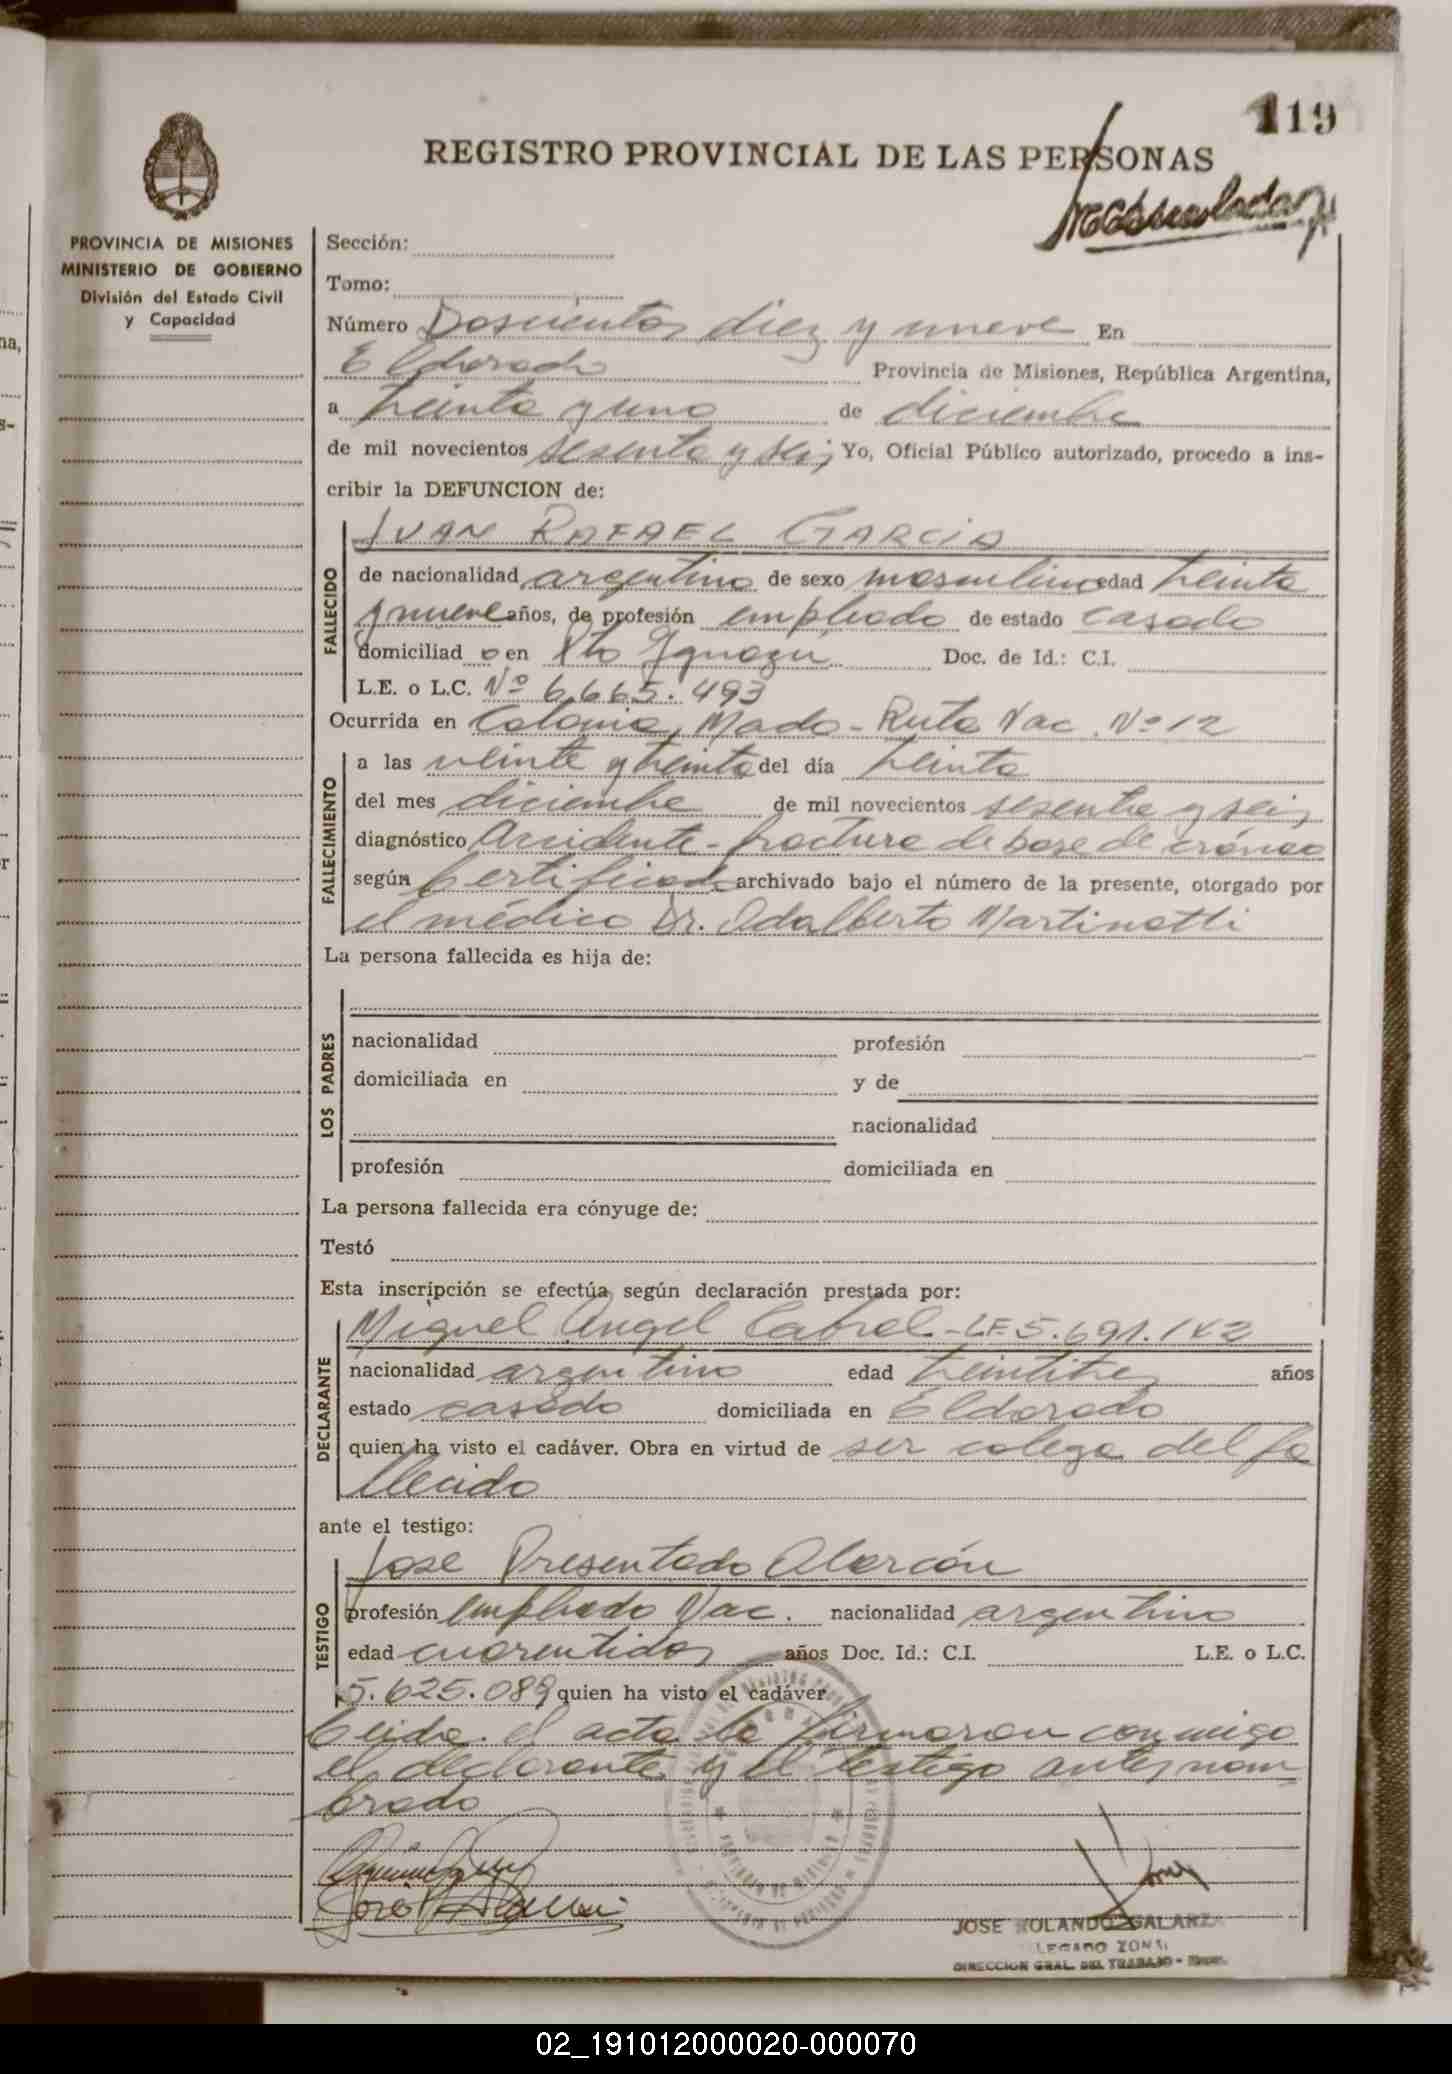 119
REGISTRO PROVINCIAL DE LAS PERSONAS
PROVINCIA DE MISIONES
MINISTERIO DE GOBIERNO
División del Estado Civil
y Capacidad
Sección:
Tomo:
Número Doscientos diez y nueve En
Eldorado Provincia de Misiones, República Argentina,
a treinta y uno de diciembre
de mil novecientos sesenta y seis Yo, Oficial Público autorizado, procedo a ins-
cribir la DEFUNCION de:
FALLECIDO
JUAN RAFAEL GARCIA
de nacionalidad argentino de sexo masculino edad treinta
y nueve años, de profesión empleado de estado casado
domiciliad o en Pto Iguazú Doc. de Id.: C.I.
L.E. o L.C. Nº 6.665.493
Ocurrida en Colonia Mado - Ruta Nac. Nº 12
FALLECIMIENTO
a las veinte y treinta del día treinta
del mes diciembre de mil novecientos sesenta y seis
diagnóstico Accidente - fractura de base de cráneo
según Certificado archivado bajo el número de la presente, otorgado por
el médico Dr. Adalberto Martinotti
La persona fallecida es hija de:
LOS PADRES
nacionalidad profesión
domiciliada en y de
nacionalidad
profesión domiciliada en
La persona fallecida era cónyuge de:
Testó
Esta inscripción se efectúa según declaración prestada por:
DECLARANTE
Miguel Angel Cabrel - LE.
nacionalidad argentino edad treintitres años
estado casado domiciliada en Eldorado
quien ha visto el cadáver. Obra en virtud de ser colega del fa
llecido
ante el testigo:
TESTIGO
Jose Presentado Alarcón
profesión empleado Nac. nacionalidad argentino
edad cuarentidos años Doc. Id.: C.I. L.E. o L.C.
5.625.089 quien ha visto el cadáver
Leida el acta la firmaron conmigo
el declarante y el testigo antes nom
brado
JOSE ROLANDO GALARZA
DELEGADO ZONAL
DIRECCION GRAL. DEL TRABAJO
02_191012000020-000070